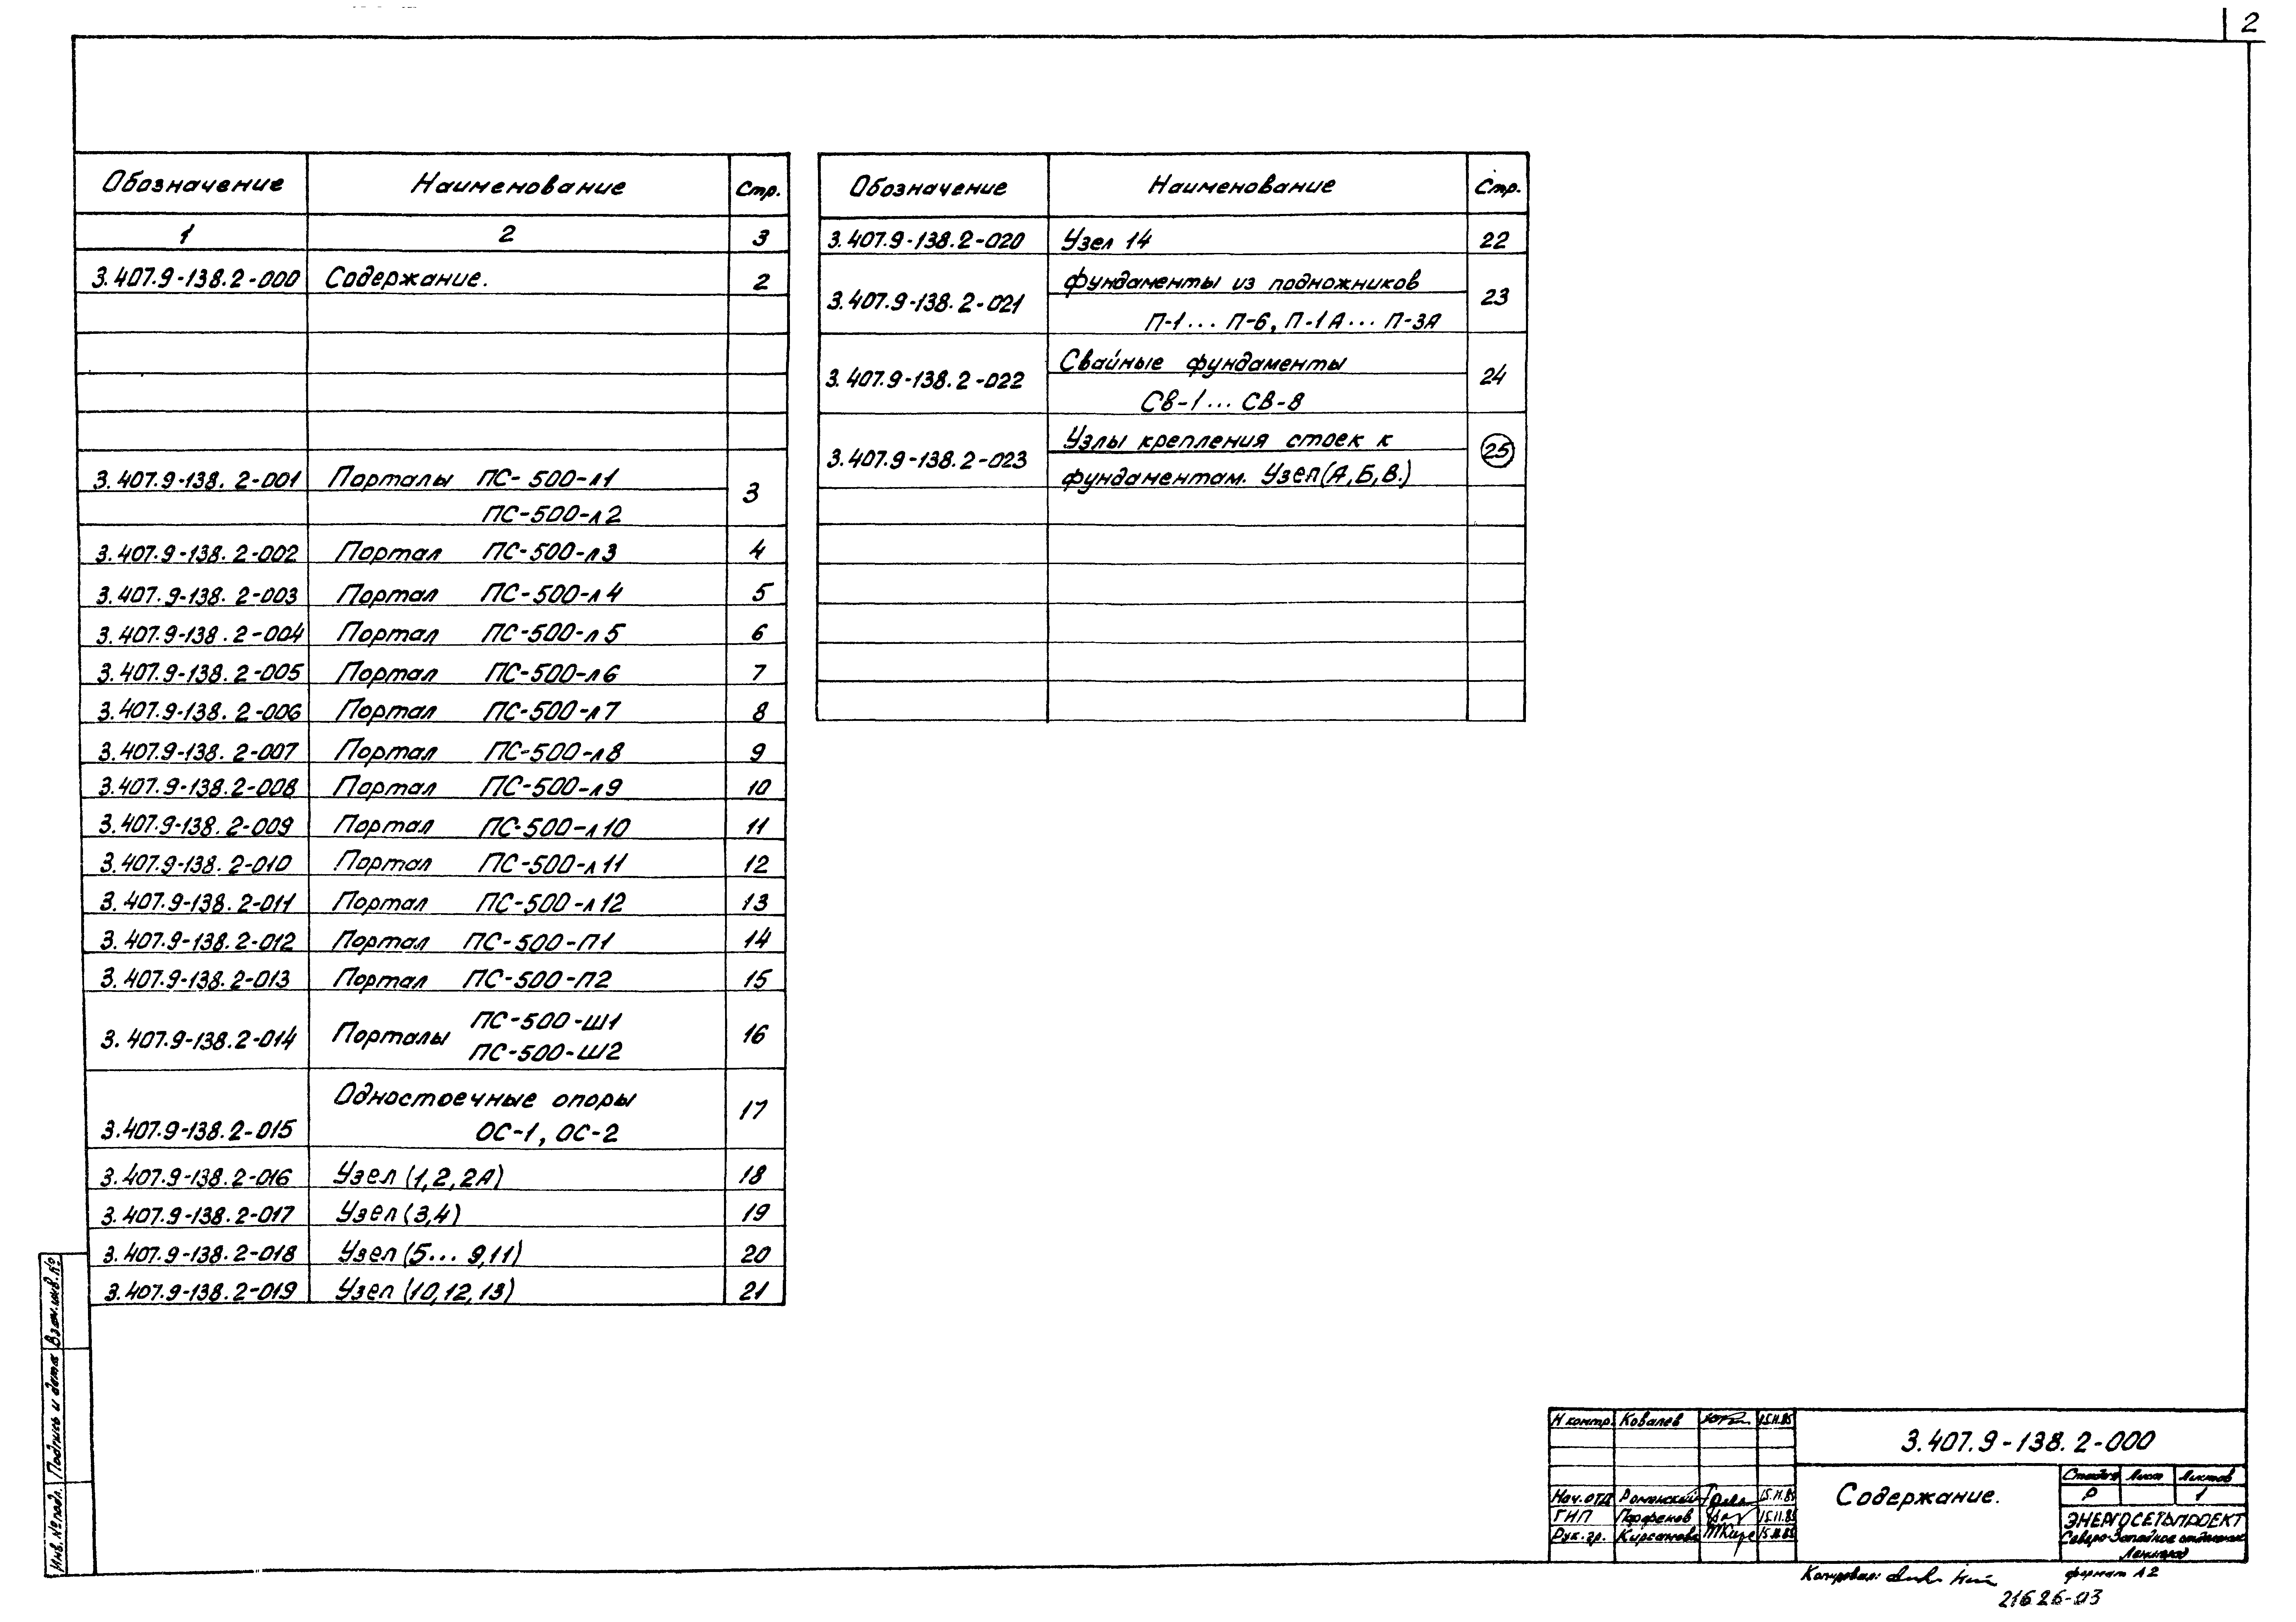 2
Обозначение Наименование Стр.
1 2 3
3.407.9-138.2-000 Содержание. 2
3.407.9-138.2-001 Порталы ПС-500-л1 3
ПС-500-л2
3.407.9-138.2-002 Портал ПС-500-л3 4
3.407.9-138.2-003 Портал ПС-500-л4 5
3.407.9-138.2-004 Портал ПС-500-л5 6
3.407.9-138.2-005 Портал ПС-500-л6 7
3.407.9-138.2-006 Портал ПС-500-л7 8
3.407.9-138.2-007 Портал ПС-500-л8 9
3.407.9-138.2-008 Портал ПС-500-л9 10
3.407.9-138.2-009 Портал ПС-500-л10 11
3.407.9-138.2-010 Портал ПС-500-л11 12
3.407.9-138.2-011 Портал ПС-500-л12 13
3.407.9-138.2-012 Портал ПС-500-П1 14
3.407.9-138.2-013 Портал ПС-500-П2 15
3.407.9-138.2-014 Порталы ПС-500-Ш1 16
ПС-500-Ш2
Одностоечные опоры 17
3.407.9-138.2-015 ОС-1, ОС-2
3.407.9-138.2-016 Узел (1,2,2А) 18
3.407.9-138.2-017 Узел (3,4) 19
3.407.9-138.2-018 Узел (5... 9,11) 20
3.407.9-138.2-019 Узел (10,12,13) 21
Обозначение Наименование Стр.
3.407.9-138.2-020 Узел 14 22
3.407.9-138.2-021 Фундаменты из подножников 23
П-1... П-6, П-1А... П-3А
3.407.9-138.2-022 Свайные фундаменты 24
СВ-1... СВ-8
3.407.9-138.2-023 Узлы крепления стоек к 25
фундаментам. Узел(А,Б,В.)
Взам.инв.№
Подпись и дата
Инв.№ подл.
Н контр. Ковалев 15.11.85
Нач.отд Роменский 15.11.85
ГИП Парфенов 15.11.85
Рук.гр. Кирсанова 15.11.85
3.407.9-138.2-000
Содержание.
Стадия Лист Листов
Р 1
ЭНЕРГОСЕТЬПРОЕКТ
Северо-Западное отделение
Ленинград
Копировал:
формат А2
21626-03